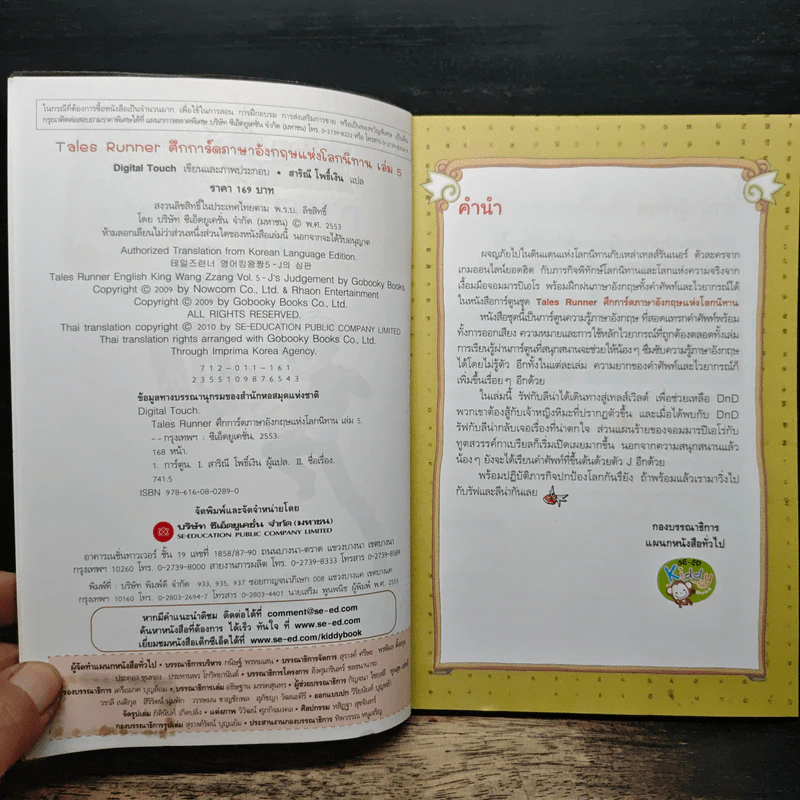 ในกรณีที่ต้องการซื้อหนังสือเป็นจำนวนมาก เพื่อใช้ในการสอน การฝึกอบรม การส่งเสริมการขาย หรือเป็นของขวัญพิเศษ เป็นต้น
กรุณาติดต่อสอบถามราคาพิเศษได้ที่ แผนกการตลาดพิเศษ บริษัท ซีเอ็ดยูเคชั่น จำกัด (มหาชน) โทร. 0-2739-8222 หรือ โทรสาร
Tales Runner ศึกการ์ดภาษาอังกฤษแห่งโลกนิทาน เล่ม 5
Digital Touch เขียนและภาพประกอบ • สาริณี โพธิ์เงิน แปล
ราคา 169 บาท
สงวนลิขสิทธิ์ในประเทศไทยตาม พ.ร.บ. ลิขสิทธิ์
โดย บริษัท ซีเอ็ดยูเคชั่น จำกัด (มหาชน) © พ.ศ. 2553
ห้ามลอกเลียนไม่ว่าส่วนหนึ่งส่วนใดของหนังสือเล่มนี้ นอกจากจะได้รับอนุญาต
Authorized Translation from Korean Language Edition.
테일즈런너 영어킹왕짱5-J의 심판
Tales Runner English King Wang Zzang Vol. 5-J's Judgement by Gobooky Books
Copyright © 2009 by Nowcom Co., Ltd. & Rhaon Entertainment
Copyright © 2009 by Gobooky Books Co., Ltd.
ALL RIGHTS RESERVED.
Thai translation copyright © 2010 by SE-EDUCATION PUBLIC COMPANY LIMITED
Thai translation rights arranged with Gobooky Books Co., Ltd.
Through Imprima Korea Agency.
712-011-161
2355109876543
ข้อมูลทางบรรณานุกรมของสำนักหอสมุดแห่งชาติ
Digital Touch.
Tales Runner ศึกการ์ดภาษาอังกฤษแห่งโลกนิทาน เล่ม 5.
--กรุงเทพฯ : ซีเอ็ดยูเคชั่น, 2553.
168 หน้า.
1. การ์ตูน. I. สาริณี โพธิ์เงิน ผู้แปล. II. ชื่อเรื่อง.
741.5
ISBN 978-616-08-0289-0
จัดพิมพ์และจัดจำหน่ายโดย
บริษัท ซีเอ็ดยูเคชั่น จำกัด (มหาชน)
SE-EDUCATION PUBLIC COMPANY LIMITED
อาคารเนชั่นทาวเวอร์ ชั้น 19 เลขที่ 1858/87-90 ถนนบางนา-ตราด แขวงบางนา เขตบางนา
กรุงเทพฯ 10260 โทร. 0-2739-8000 สายงานการผลิต โทร. 0-2739-8333 โทรสาร 0-2739-8589
พิมพ์ที่ : บริษัท พิมพ์ดี จำกัด 933, 935, 937 ซอยกาญจนาภิเษก 008 แขวงบางแค เขตบางแค
กรุงเทพฯ 10160 โทร. 0-2803-2694-7 โทรสาร 0-2803-4401 นายเสริม พูนพนิช ผู้พิมพ์ พ.ศ. 2553
หากมีคำแนะนำติชม ติดต่อได้ที่ comment@se-ed.com
ค้นหาหนังสือที่ต้องการ ได้เร็ว ทันใจ ที่ www.se-ed.com
เยี่ยมชมหนังสือเด็กซีเอ็ดได้ที่ www.se-ed.com/kiddybook
ผู้จัดทำแผนกหนังสือทั่วไป • บรรณาธิการบริหาร • บรรณาธิการจัดการ
บรรณาธิการเล่ม • ผู้ช่วยบรรณาธิการ
ออกแบบปก
จัดรูปเล่ม • แต่งภาพ • ศิลปกรรม
กองบรรณาธิการรูปเล่ม • ประสานงานกองบรรณาธิการ
คำนำ
ผจญภัยไปในดินแดนแห่งโลกนิทานกับเหล่าเทลส์รันเนอร์ ตัวละครจาก
เกมออนไลน์ยอดฮิต กับภารกิจพิทักษ์โลกนิทานและโลกแห่งความจริงจาก
เงื้อมมือจอมมารปิเอโร พร้อมฝึกฝนภาษาอังกฤษทั้งคำศัพท์และไวยากรณ์ได้
ในหนังสือการ์ตูนชุด Tales Runner ศึกการ์ดภาษาอังกฤษแห่งโลกนิทาน
หนังสือชุดนี้เป็นการ์ตูนความรู้ภาษาอังกฤษ ที่สอดแทรกคำศัพท์พร้อม
ทั้งการออกเสียง ความหมายและการใช้หลักไวยากรณ์ที่ถูกต้องตลอดทั้งเล่ม
การเรียนรู้ผ่านการ์ตูนที่สนุกสนานจะช่วยให้น้องๆ ซึมซับความรู้ภาษาอังกฤษ
ได้โดยไม่รู้ตัว อีกทั้งในแต่ละเล่ม ความยากของคำศัพท์และไวยากรณ์ก็
เพิ่มขึ้นเรื่อยๆ อีกด้วย
ในเล่มนี้ รัฟกับลีน่าได้เดินทางสู่เทลส์เวิลด์ เพื่อช่วยเหลือ DnD
พวกเขาต้องสู้กับเจ้าหญิงหิมะที่ปรากฏตัวขึ้น และเมื่อได้พบกับ DnD
รัฟกับลีน่ากลับเจอเรื่องที่น่าตกใจ ส่วนแผนร้ายของจอมมารปิเอโรกับ
ทูตสวรรค์กาเบรียลก็เริ่มเปิดเผยมากขึ้น นอกจากความสนุกสนานแล้ว
น้องๆ ยังจะได้เรียนคำศัพท์ที่ขึ้นต้นด้วยตัว J อีกด้วย
พร้อมปฏิบัติภารกิจปกป้องโลกกันรึยัง ถ้าพร้อมแล้วเรามาวิ่งไป
กับรัฟและลีน่ากันเลย
กองบรรณาธิการ
แผนกหนังสือทั่วไป
SE-ED
Kiddy